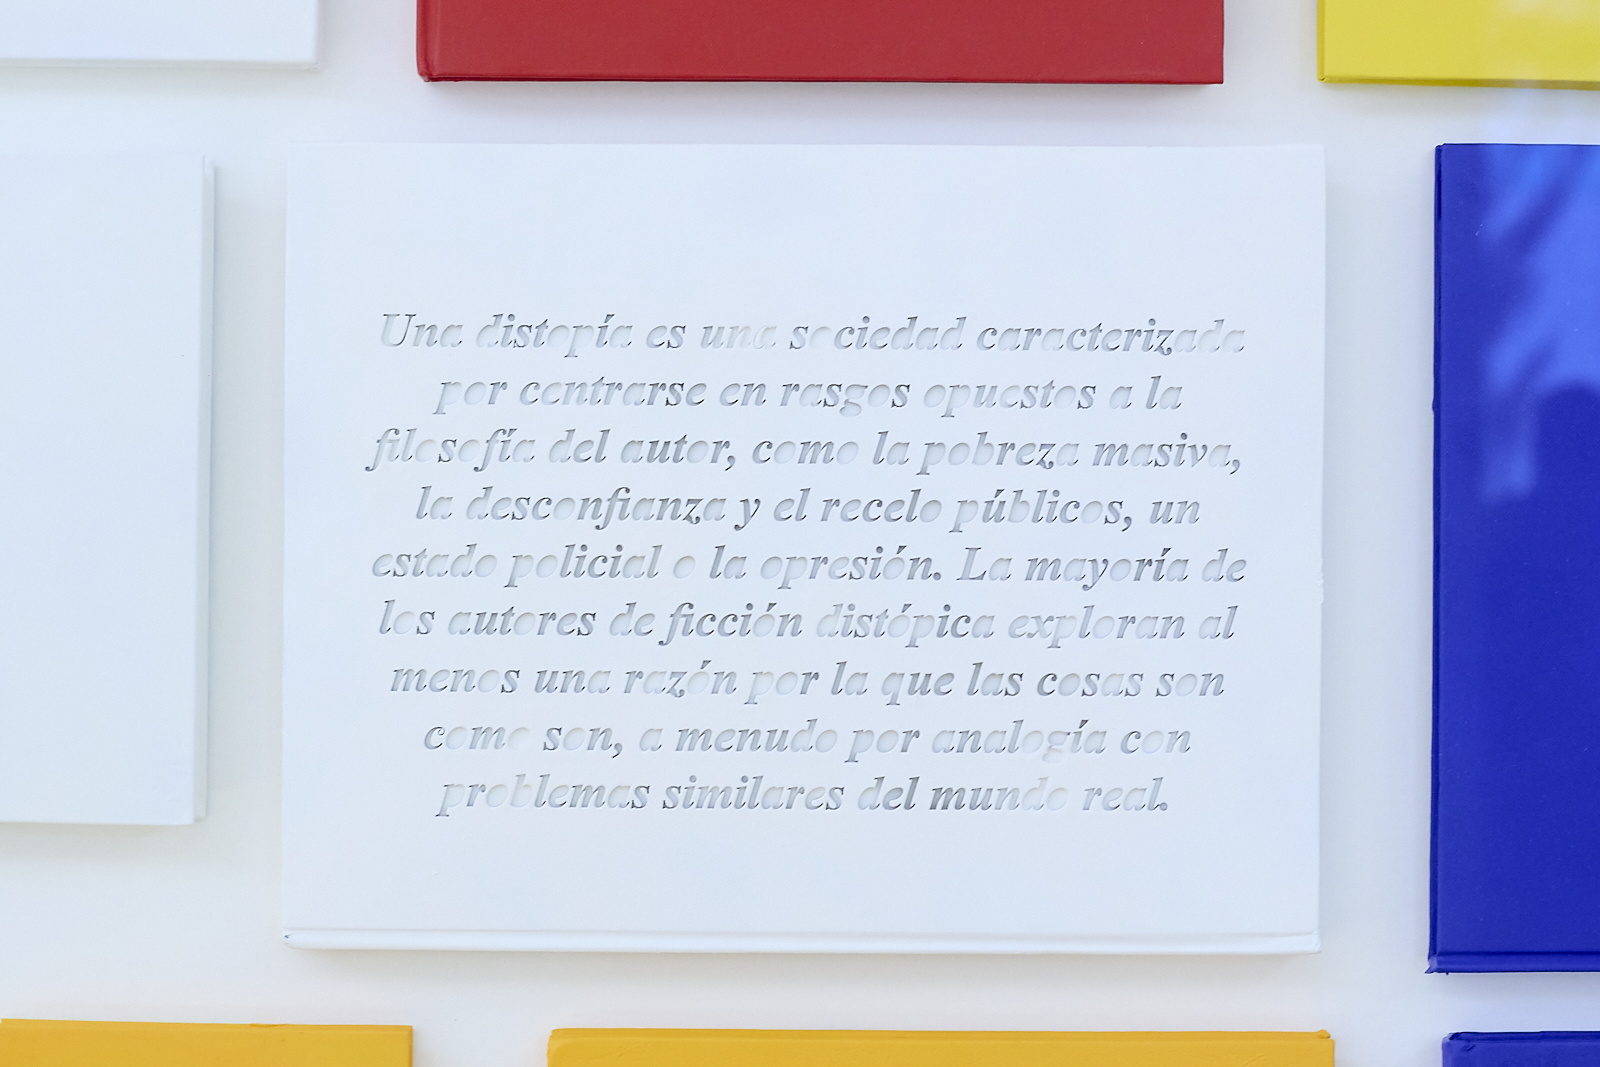 Una distopía es una sociedad caracterizada
por centrarse en rasgos opuestos a la
filosofía del autor, como la pobreza masiva,
la desconfianza y el recelo públicos, un
estado policial o la opresión. La mayoría de
los autores de ficción distópica exploran al
menos una razón por la que las cosas son
como son, a menudo por analogía con
problemas similares del mundo real.